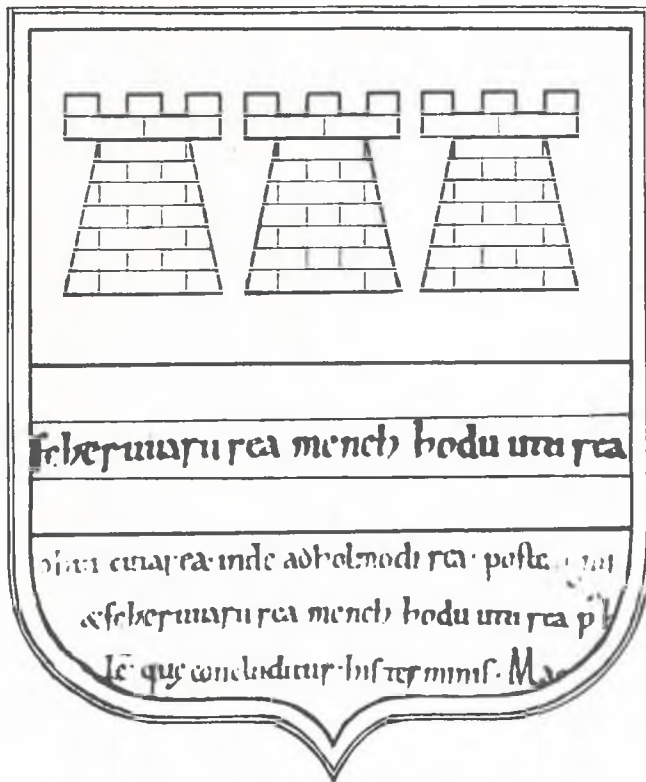 feheruuaru rea meneh hodu utu rea
cuta rea· inde ad holmodi rea· poste
& feheruuaru rea meneh hodu utu rea p
que concluditur· his terminis·